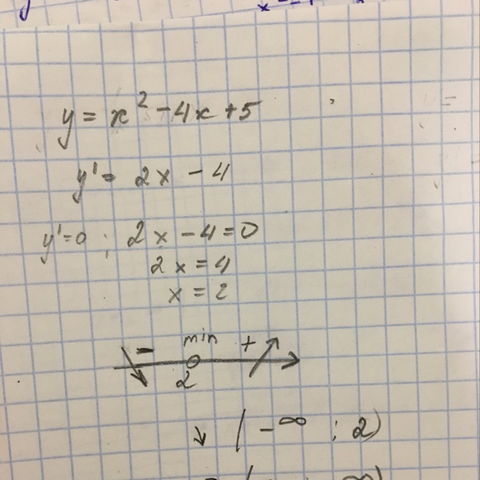 y = x² - 4x + 5
y' = 2x - 4
y'=0 ; 2x - 4 = 0
2x = 4
x = 2
- min +
2
↘ (-∞ ; 2)
∞)